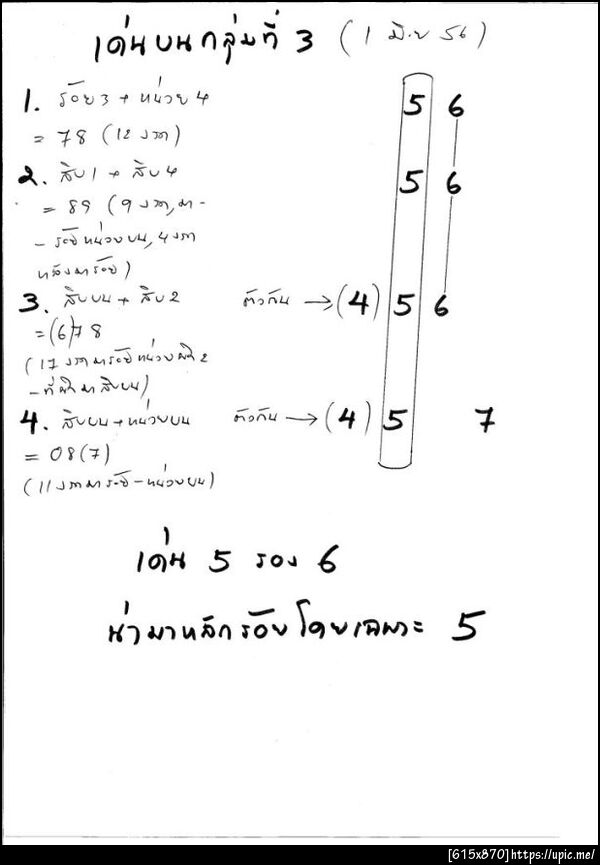 เด่นบนกลุ่มที่ 3 (1 มิ.ย 56)
1. ร้อย3 + หน่วย4 5 6
= 78 (12 งวด)
2. สิบ1 + สิบ4 5 6
= 89 (9 งวด, มา-
- ร้อยหน่วยบน, 4 งวด
หลังมาร้อย)
3. สิบบน + สิบ2 ตัวกัน → (4) 5 6
=(6)78
(17 งวดมาร้อยหน่วยผิด 2
- ที่ผิดมาสิบบน)
4. สิบบน + หน่วยบน ตัวกัน → (4) 5 7
= 08(7)
(11 งวดมาร้อย - หน่วยบน)
เด่น 5 รอง 6
น่ามาหลักร้อยโดยเฉพาะ 5
[615x870]https://upic.me/